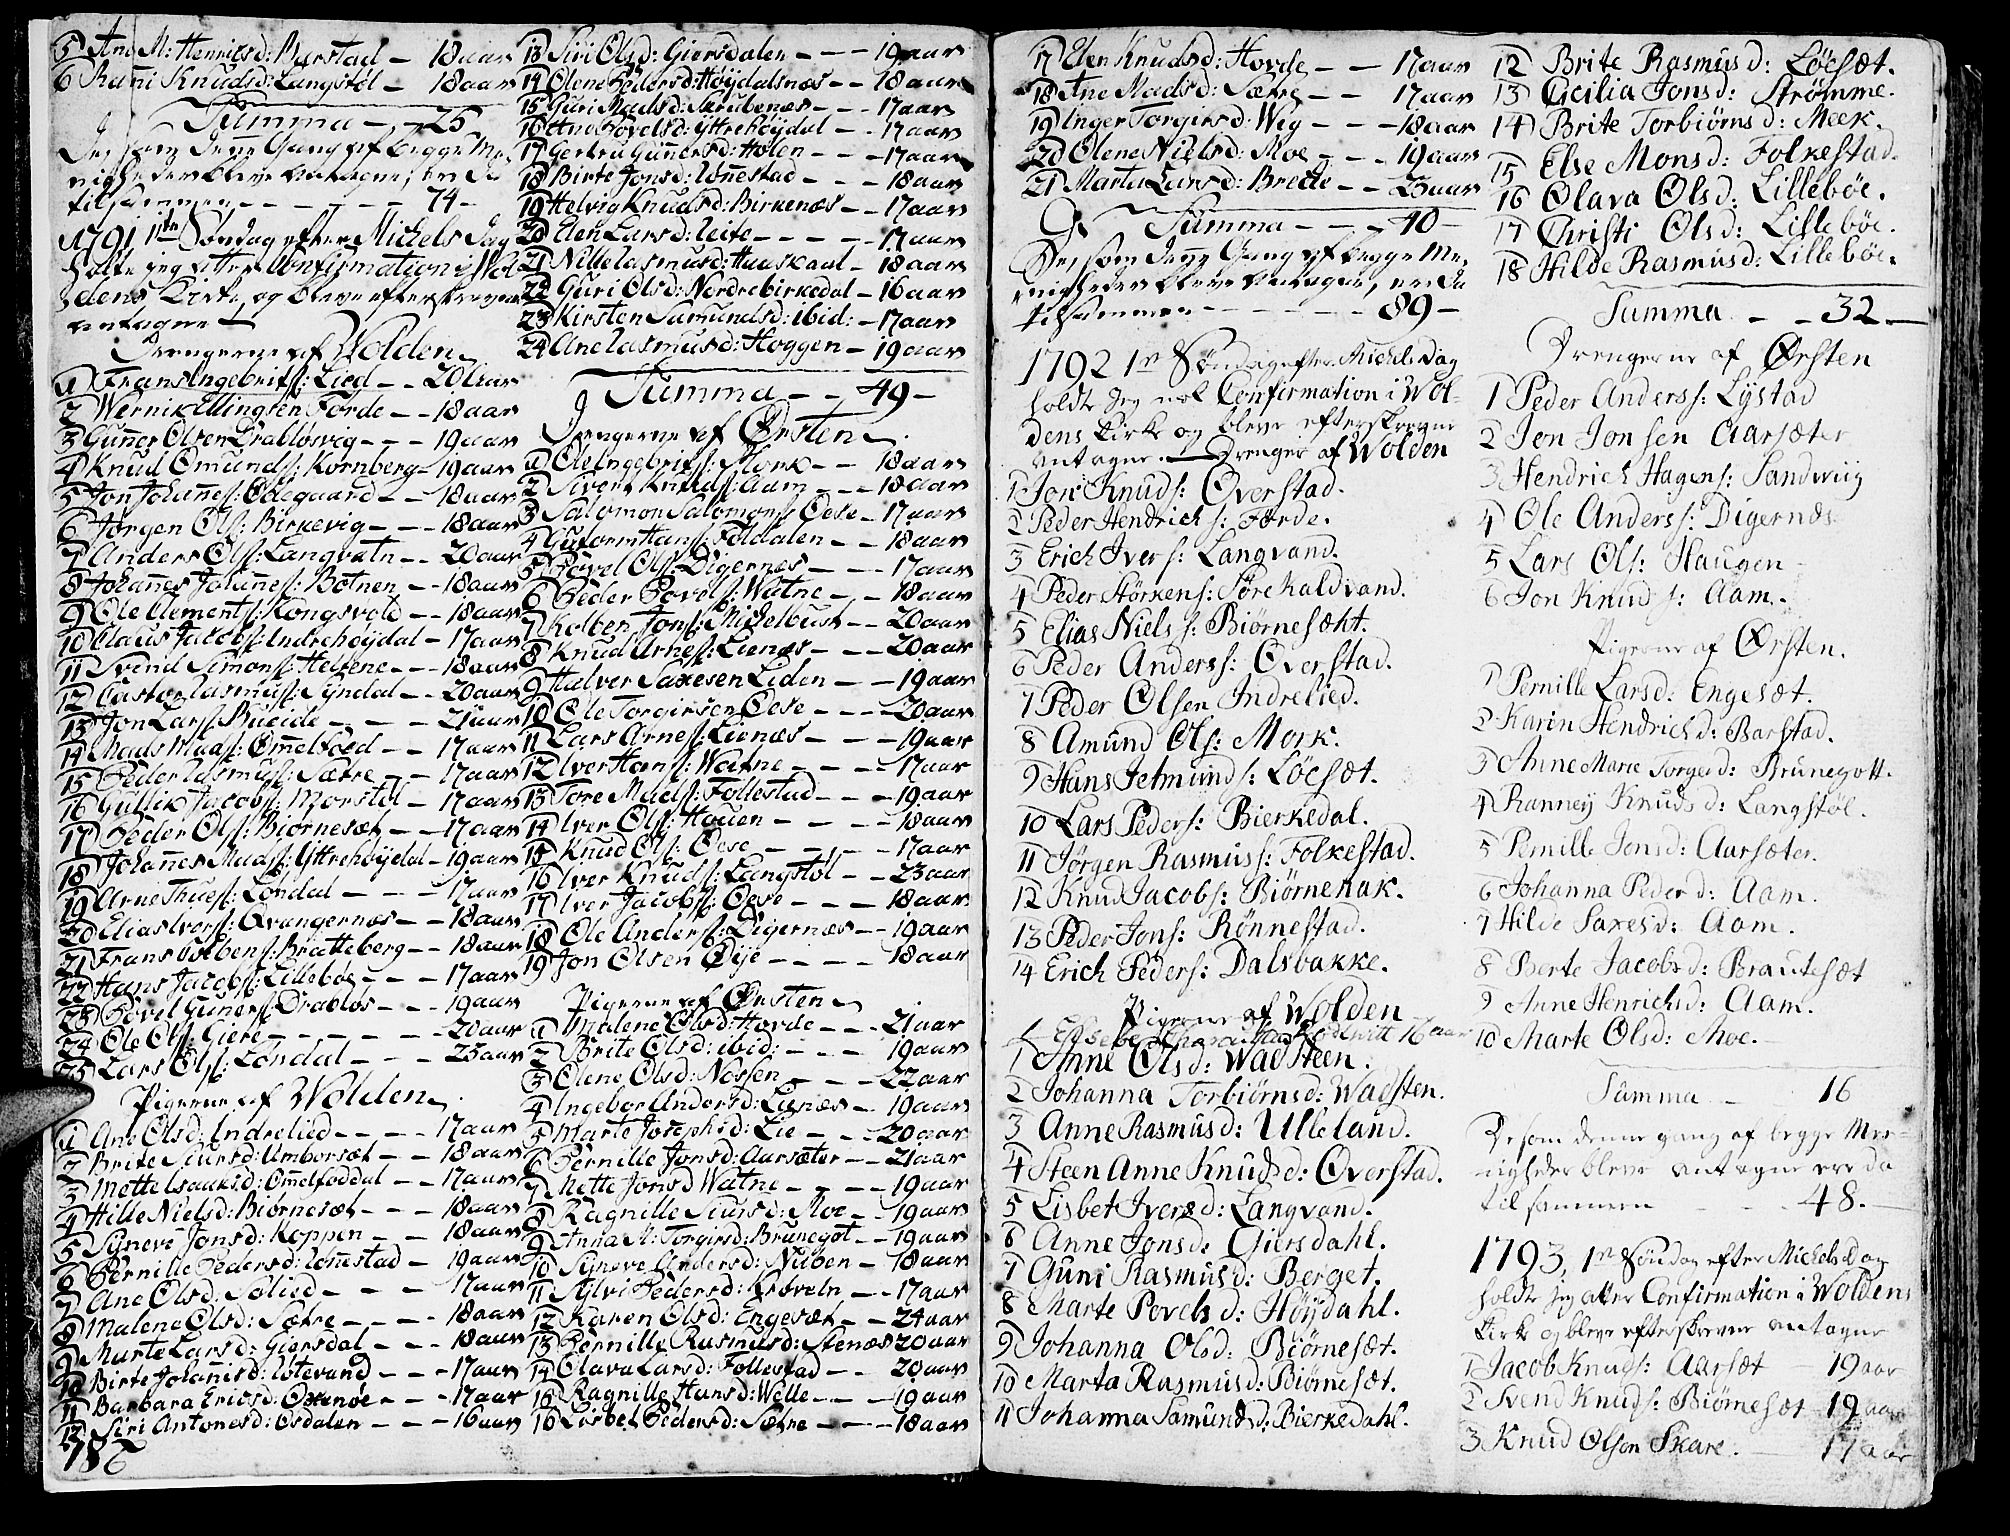 5 Ane M: Henriksd: Barstad — 18 aar
6 Rani Knudsd: Langstøl — 18 aar
Summa — 25
De som denne Gang af begge Me-
nigheder bleve antagne, ere da
tilsammen — 74 —
1791 1ste Søndag efter Michels Dag
holte jeg atter Confirmation i Wol
dens Kirke, og bleve efterskrevne
antagne —
Drengerne af Wolden
1 Frans Ingebrits: Lied — 20 aar
2 Wernik Ellingsen Førde — 18 aar
3 Guñer Olsen Drabløsvig — 19 aar
4 Knud Omunds: Kornberg — 19 aar
5 Jon Johañes: Ødegaard — 18 aar
6 Jørgen Ols: Birkevig — 18 aar
7 Anders Ols: Langvatn — 20 aar
8 Johañes Johañes: Botnen — 18 aar
9 Ole Clements: Kongsvold — 18 aar
10 Claus Jacobs: Indrehøydal — 17 aar
11 Svend Simons: Helsene — 18 aar
12 Rasmus: Syndal — 20 aar
13 Jon Lars: Bueide — 21 aar
14 Mads Mads: Omelfoed — 17 aar
15 Peder Rasmus: Sætre — 17 aar
16 Gullik Jacobs: Morstøl — 17 aar
17 Peder Ols: Biørnesæt — 17 aar
18 Johañes Mads: Yttrehøydal — 19 aar
19 Arne Thues: Løndal — 17 aar
20 Elias Ivers: Qvangernæs — 18 aar
21 Frans Esbens: Bratteberg — 18 aar
22 Hans Jacobs: Lillebøe — 17 aar
23 Povel Guners: Drabløs — 19 aar
24 Ole Ols: Giere — 20 aar
25 Lars Ols: Løndal — 23 aar
Pigerne af Wolden
1 Ane Olsd: Indrelied — 17 aar
2 Brite Siursd: Amborsæt — 18 aar
3 Mette Isaaksd: Omelfoddal — 17 aar
4 Hille Nielsd: Biørnesæt — 18 aar
5 Syneve Jonsd: Koppen — 18 aar
6 Pernille Pedersd: Røñestad — 19 aar
7 Ane Olsd: Solied — 17 aar
8 Malene Olsd: Sætre — 18 aar
9 Marte Larsd: Giersdal — 18 aar
10 Birte Johanisd: Rotevand — 17 aar
11 Barbara Ericsd: Østenøe — 17 aar
12 Siri Antonesd: Osdalen — 16 aar
13 Siri Olsd: Giersdalen — 19 aar
14 Olene Pedersd: Høydalsnæs — 18 aar
15 Guri Madsd: Skrubenæs — 17 aar
16 Ane Povelsd: Yttrehøydal — 17 aar
17 Gertru Guñersd: Holen — 17 aar
18 Birte Jonsd: Røñestad — 18 aar
19 Helvig Knudsd: Birkenæs — 17 aar
20 Elen Larsd: Leite — 17 aar
21 Nille Rasmusd: Hauskaal — 18 aar
22 Guri Olsd: Nordre birkedal — 16 aar
23 Kirsten Samundsd: ibid: — 17 aar
24 Ane Rasmusd: Hoggen — 19 aar
Summa — 49 —
Drengerne af Ørsten
1 Ole Ingebrits: Mork — 18 aar
2 Siver Knuds: Aam — 18 aar
3 Salomon Salomons: Oese — 17 aar
4 Gutorm Hans: Foldalen — 18 aar
5 Povel Ols: Digernæs — 17 aar
6 Peder Povels: Watne — 18 aar
7 Kolben Jons: Mickelbust — 20 aar
8 Knud Arnes: Lienæs — 20 aar
9 Halver Saxesen Liden — 19 aar
10 Ole Torgirsen Oese — 20 aar
11 Lars Arnes: Lienæs — 19 aar
12 Iver Hans: Watne — 17 aar
13 Tore Mads: Follestad — 19 aar
14 Iver Ols: Houen — 18 aar
15 Knud Ols: Oese — 17 aar
16 Iver Knuds: Langstøl — 23 aar
17 Iver Jacobs: Oese — 18 aar
18 Ole Anders: Digernæs — 19 aar
19 Jon Olsen Øije — 18 aar
Pigerne af Ørsten
1 Malene Olsd: Hovde — 21 aar
2 Brite Olsd: ibid: — 19 aar
3 Olene Olsd: Nossen — 22 aar
4 Ingebor Andersd: Lienæs — 19 aar
5 Marte Josephsd: Lie — 20 aar
6 Pernille Jonsd: Aarsæter — 21 aar
7 Mette Jonsd Watne — 19 aar
8 Ragnille Siursd: Moe — 19 aar
9 Anna M: Torgirsd: Brunegot — 19 aar
10 Syneve Andersd: Nuben — 18 aar
11 Sylvi Pedersd: Krøveln — 17 aar
12 Karen Olsd: Engesæt — 24 aar
13 Pernille Rasmusd: Stenæs 20 aar
14 Olava Larsd: Follestad — 20 aar
15 Ragnille Hansd: Welle — 19 aar
16 Lisbet Pedersd: Sætre — 18 aar
17 Elen Knudsd: Hovde — 17 aar
18 Ane Madsd: Sætre — 17 aar
19 Inger Torgersd: Wig — 18 aar
20 Olene Nielsd: Moe — 19 aar
21 Marta Larsd: Brette — 23 aar
Summa — 40 —
De, som denne Gang af begge Me-
nigheder bleve antagne, ere da
tilsammen — 89 —
1792 1ste Søndag efter Michels Dag
holdte jeg nok Confirmation i Wol-
dens Kirke og bleve efterskrevne
antagne. — Drenger af Wolden
1 Jon Knuds: Øverstad.
2 Peder Hendrichs: Førde.
3 Erich Ivers: Langvand.
4 Peder Størkens: Sørekaldvand.
5 Elias Niels: Biørnesæht.
6 Peder Anders: Øverstad.
7 Peder Olsen Indrelied.
8 Amund Ols: Mork.
9 Hans Jetmunds: Løesæt.
10 Lars Peders: Bierkedal.
11 Jørgen Rasmuss: Folkestad.
12 Knud Jacobs: Biørnenak.
13 Peder Jons: Rønnestad.
14 Erich Peders: Dalsbakke.
Pigerne af Wolden
16 aar
1 Anne Olsd: Wadsteen.
2 Johanna Torbiørnsd: Wadsten.
3 Anne Rasmusd: Ulleland.
4 Steen Anne Knudsd: Øverstad.
5 Lisbet Iversd: Langvand.
6 Anne Jonsd: Giersdahl.
7 Guni Rasmusd: Berget.
8 Marte Povelsd: Høydahl.
9 Johanna Olsd: Biørnesæt.
10 Marta Rasmusd: Biørnesæt.
11 Johanna Samundsd: Bierkedahl.
12 Brite Rasmusd: Løesæt.
13 Cicilia Jonsd: Strømme.
14 Brite Torbiørnsd: Meek.
15 Else Monsd: Folkestad.
16 Olava Olsd: Lillebøe.
17 Christi Olsd: Lillebøe.
18 Hilde Rasmusd: Lillebøe.
Summa — 32 —
Drengerne af Ørsten
1 Peder Anders: Lystad
2 Jon Jonsen Aarsæter
3 Hendrich Hagens: Sandwiig
4 Ole Anders: Digernæs
5 Lars Ols: Haugen
6 Jon Knuds: Aam.
Pigerne af Ørsten.
1 Pernille Larsd: Engesæt.
2 Karen Hendrichd: Barstad.
3 Anne Marie Torgersd: Brunegott.
4 Ranney Knudsd: Langstøl.
5 Pernille Jonsd: Aarsæter.
6 Johanna Pederd: Aam.
7 Hilde Saxesd: Aam.
8 Berte Jacobsd: Brautesæt
9 Anne Henrichsd: Aam.
10 Marte Olsd: Moe.
Summa — 16
De som denne gang af begge Me-
nigheder bleve antagne ere da
tilsammen — 48. —
1793, 1ste Søndag efter Michelsdag
holdte jeg atter Confirmation i Woldens
Kirke og bleve efterskrevne antagne
1 Jacob Knuds: Aarsæt 19 aar
2 Svend Knuds: Biørnesæt — 19 aar
3 Knud Olson Skare. — 17 aar